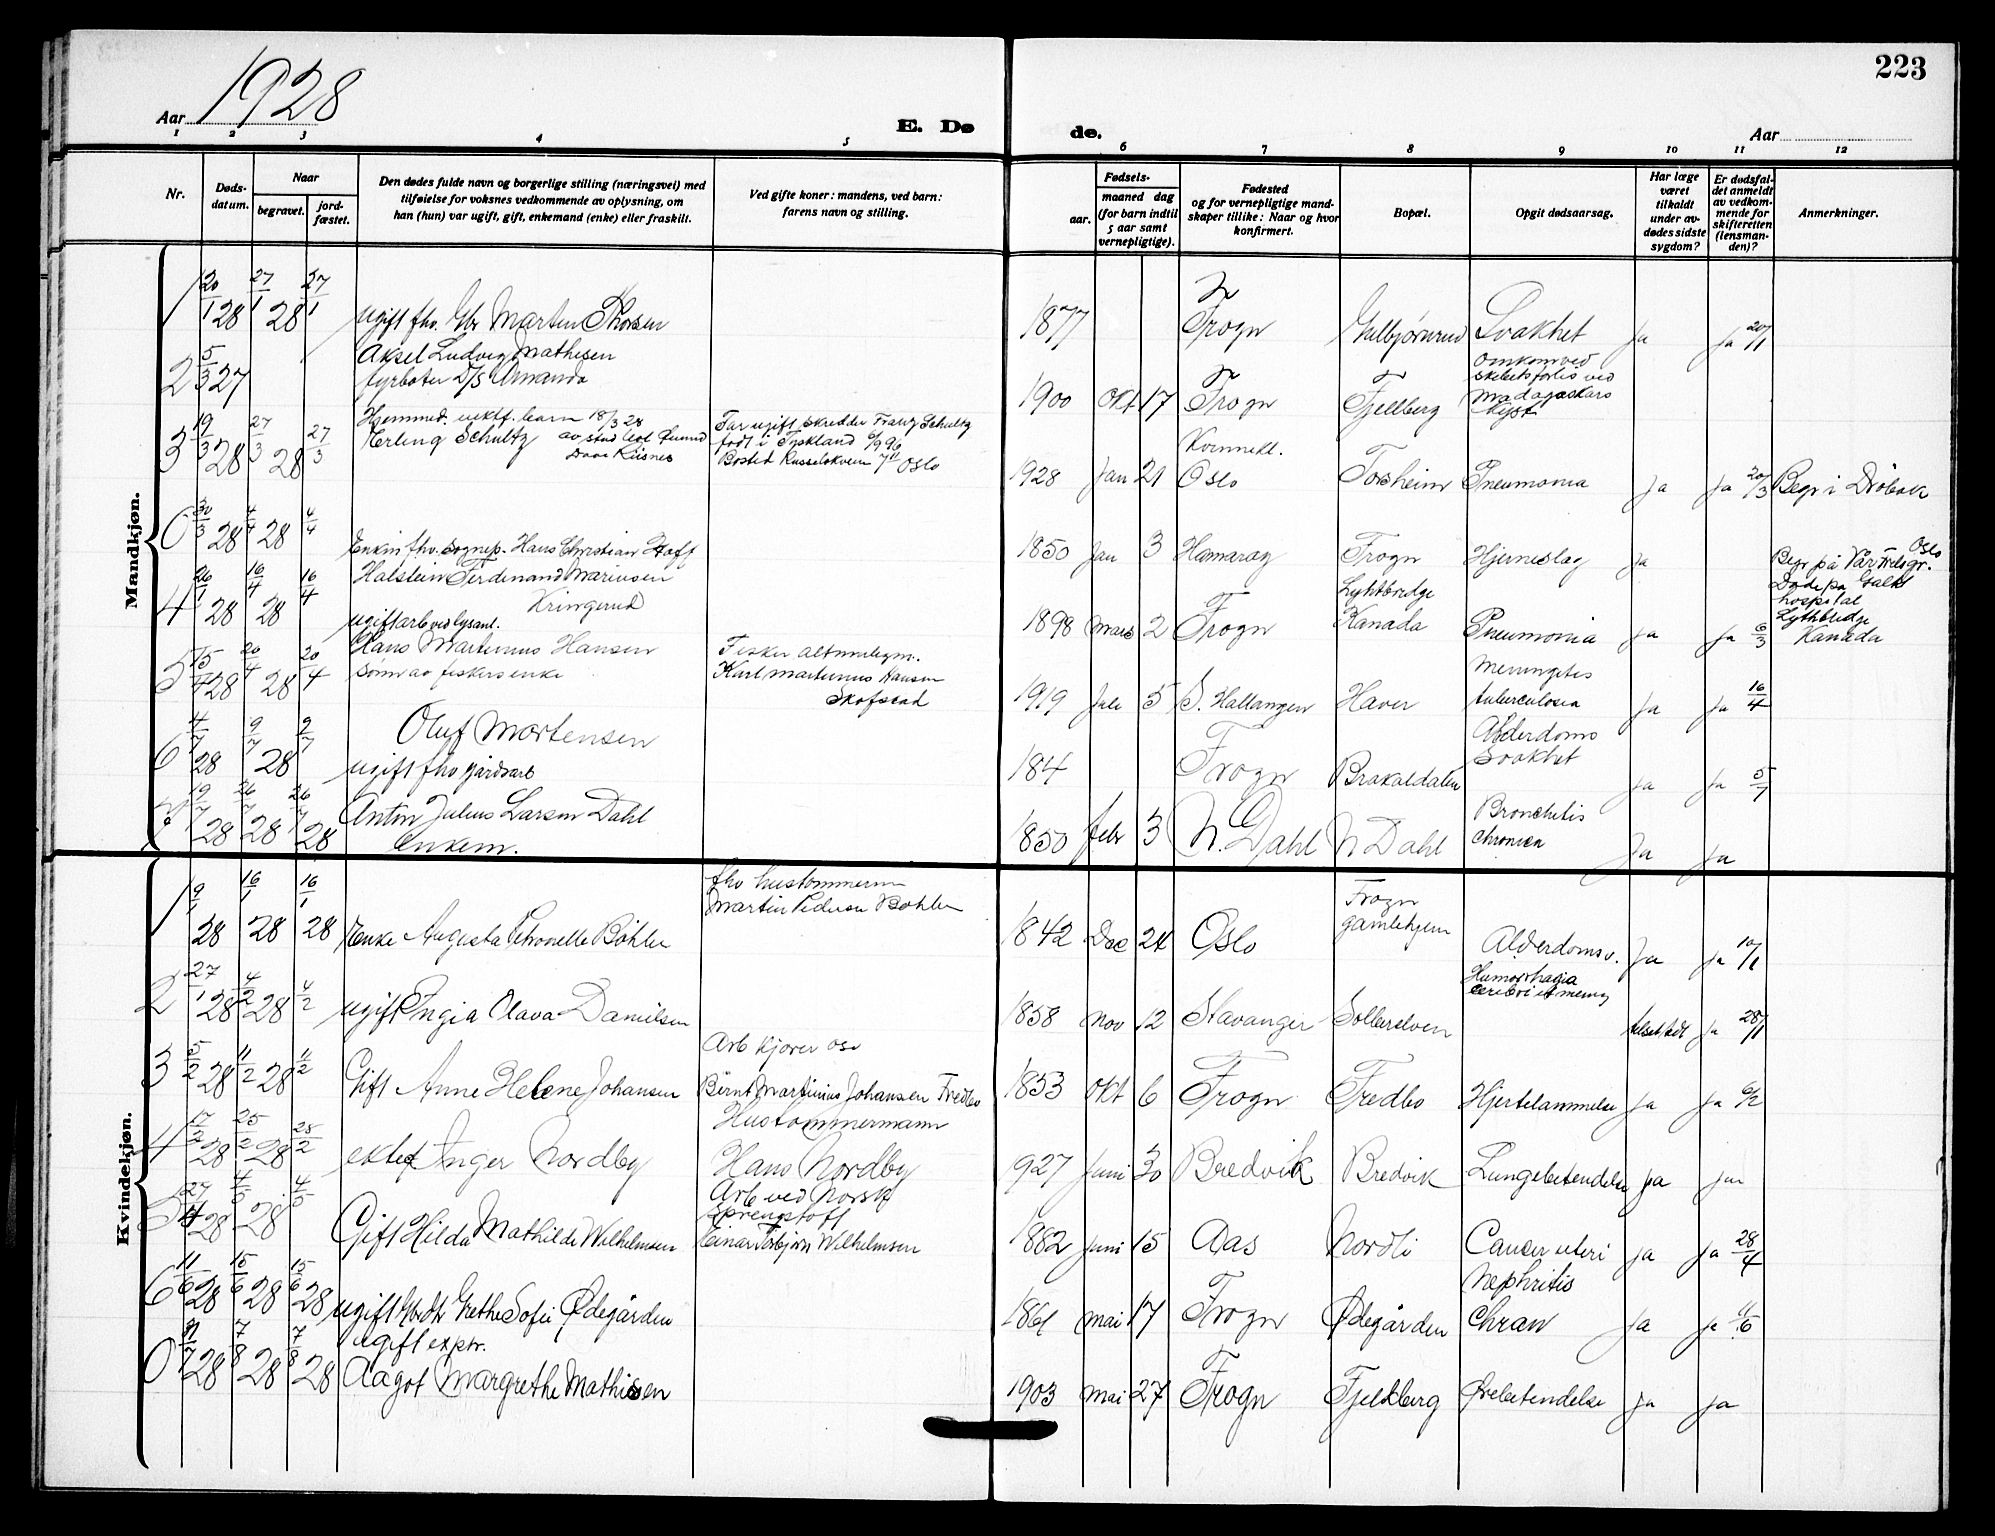 223
Aar 1928
E. Dø
de.
Aar
1 2 3 4 5 6 7 8 9 10 11 12
Nr.
Døds-
datum.
Naar
begravet.
jord-
fæstet.
Den dødes fulde navn og borgerlige stilling (næringsvei) med
tilføielse for voksnes vedkommende av oplysning, om
han (hun) var ugift, gift, enkemand (enke) eller fraskilt.
Ved gifte koner: mandens, ved barn:
farens navn og stilling.
Fødsels-
aar.
maaned dag
(for barn indtil
5 aar samt
vernepligtige).
Fødested
og for vernepligtige mand-
skaper tillike: Naar og hvor
konfirmert.
Bopæl.
Opgit dødsaarsag.
Har læge
været
tilkaldt
under av-
dødes sidste
sygdom?
Er dødsfal-
det anmeldt
av vedkom-
mende for
skifteretten
(lensman-
den)?
Anmerkninger.
Mandkjøn.
1 20/1 28 27/1 28 27/1 ugift fhv. Gbr Martin Thorsen 1877 Frogn Svakhet Ja Ja 20/1
2 5/3 27 Aksel Ludvig Mathisen
fyrbøter D/S Amanda 1900 Okt 17 Frogn Fjellberg Omkom ved
skibsforlis ved
Madagaskars
Kyst
3 19/3 28 27/3 28 27/3 Hjemmed. uektf. barn 18/3 28
Erling Schultz Far ugift skredder Franz Schultz
født i Tyskland
Bosted Oslo 1928 Jan 21 Oslo Torsheim Pneumonia Ja Ja 20/3 Begr i Drøbak
0 30/3 28 4/4 28 4/4 Enkem fhv. Sognep. Hans Christian Hoff 1850 Jan 3 Hamarøy Frogn Hjerneslag Ja Begr på Vår Frelsgr. Oslo
4 26/1 28 16/4 28 16/4 Halstein Ferdinand Marinsen
Kringerud
ugift arb ved lysanl. 1898 Mars 2 Frogn Lythbridge
Kanada Pneumonia Ja Ja 6/3 Døde på Galt
hospital
Lythbridge
Kanada
5 15/4 28 20/4 28 20/4 Hans Martinius Hansen
sønn av fiskers enke Fisker
Karl Martinius Hansen
Skofstad 1919 Juli 5 S. Hallangen Haver Meningitis
tuberculosia Ja Ja 16/4
6 4/7 28 9/7 28 9/7 Oluf Mortensen
ugift fhv gårdsarb 184 Frogn Brakaldalen Alderdoms
svakhet Ja Ja 5/7
7 19/7 28 26/7 28 26/7 28 Anton Julius Larsen Dahl
Enkem. 1850 febr 3 N. Dahl N Dahl Bronchitis
chronica Ja Ja
Kvindekjøn.
1 9/1 28 16/1 28 16/1 28 Enke Augusta Petronelle Bøhler fhv hustømmerm
Martin Pedersen Bøhler 1842 Dec 24 Oslo Frogn
gamlehjem Alderdomsv. Ja Ja 10/1
2 27/1 28 4/2 28 4/2 ugift Ingia Olava Danielsen 1858 Nov 12 Stavanger Solberelven Hæmorrhagia
cerebri et mening Ja 28/1
3 5/2 28 11/2 28 11/2 Gift Anne Helene Johansen Arb kjører osv
Bernt Martinius Johansen Fredbo 1853 Okt 6 Frogn Fredbo Hjertelammelse Ja Ja 6/2
4 17/2 28 25/2 28 25/2 ektef Inger Nordby Hustømmermann
Hans Nordby 1927 Juni 30 Bredvik Bredvik Lungebetendelse Ja Ja
5 27/4 28 4/5 28 4/5 Gift Hilda Mathilde Wilhelmsen Arb ved Norsk
Sprengstoff
Einar Torbjørn Wilhelmsen 1882 Juni 15 Aas Nordli Cancer uteri Ja Ja 28/4
6 11/6 28 15/6 28 15/6 28 ugift Gbrdtr Grethe Sofie Ødegården 1861 Mai 17 Frogn Ødegården Nephritis
Chron Ja Ja
0 31/7 28 7/8 28 7/8 28 ugift exptr.
Aagot Margrethe Mathisen 1903 Mai 27 Frogn Fjellberg Ørebetendelse Ja Ja